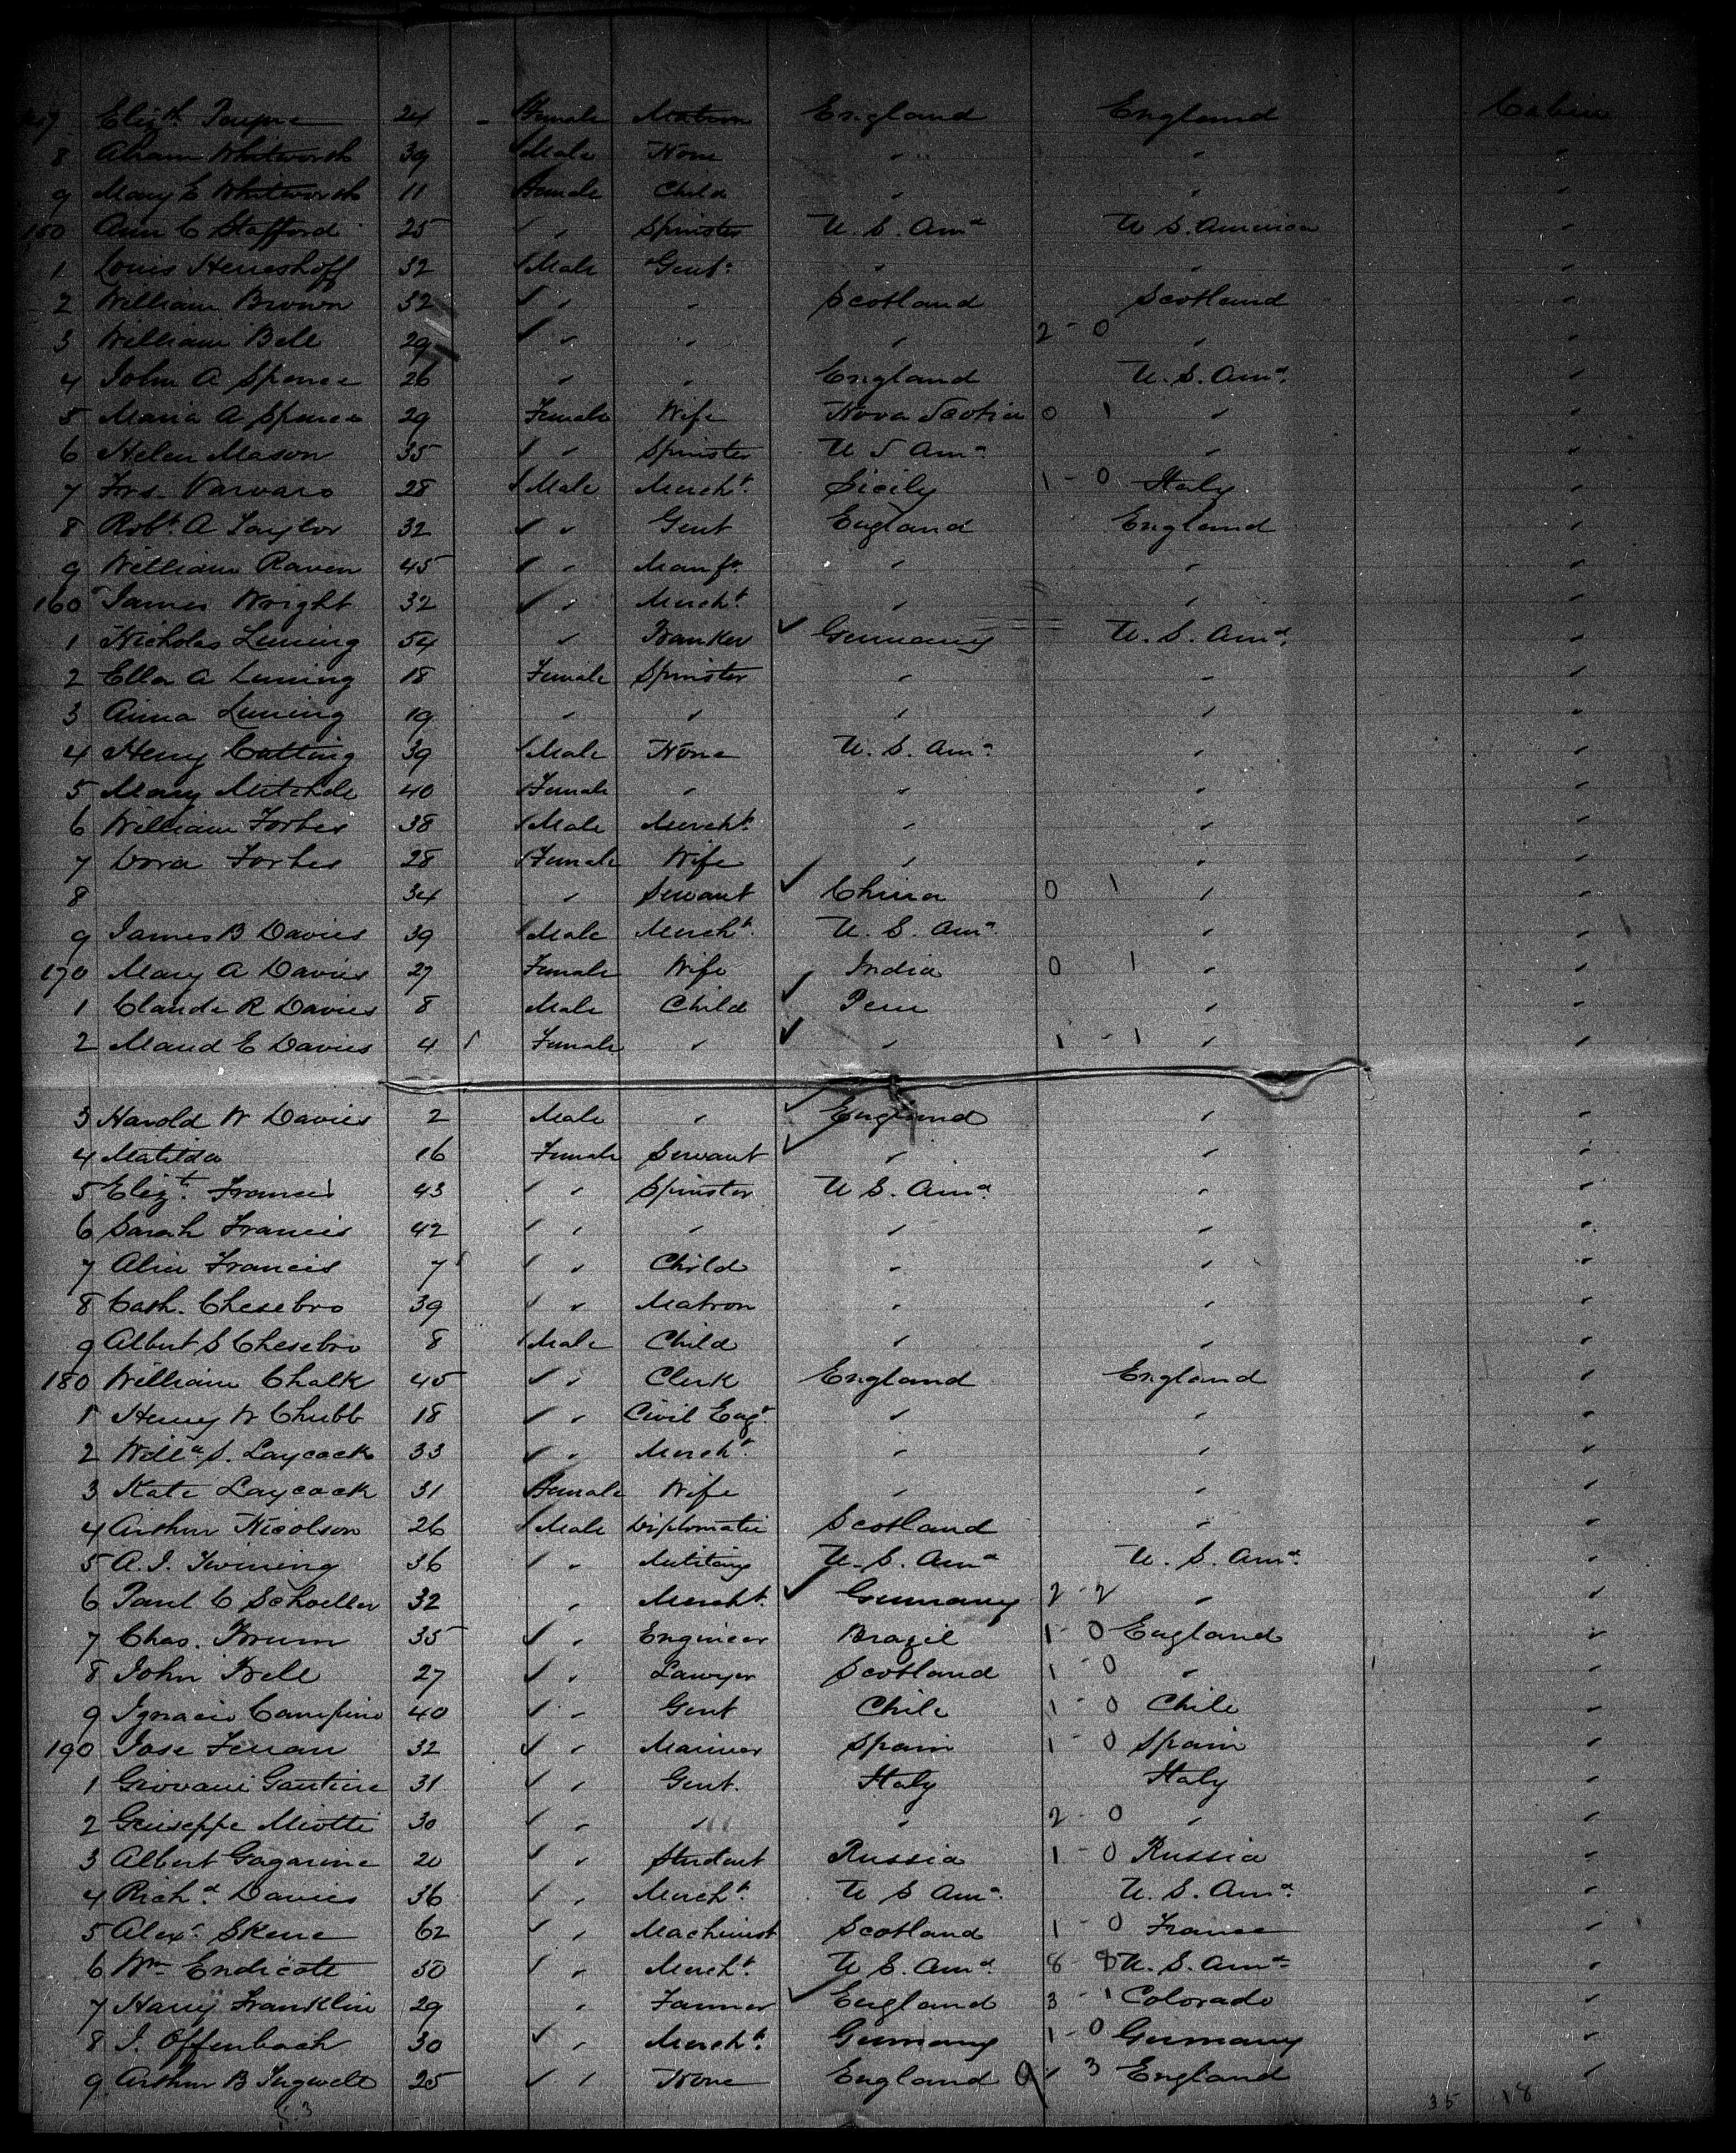 Eliz.th 24 - Female Matron England England Cabin
8 Abram Whitworth 39 Male None " " "
9 Mary E Whitworth 11 Female Child " " "
150 Ann C Stafford 25 " Spinster U. S. Am.a U S. America "
1 Louis Herreshoff 32 Male Gent. " " "
2 William Brown 32 " " Scotland Scotland "
3 William Bell 29 " " " 2 - 0 " "
4 John A Spence 26 " " England U. S. Am.a "
5 Maria A Spence 29 Female Wife Nova Scotia 0 1 " "
6 Helen Mason 35 " Spinster U S Am.a " "
7 Frs. Varvaro 28 Male Merch.t Sicily 1 - 0 Italy "
8 Rob.t A Taylor 32 " Gent England England "
9 William Raven 45 " Manf.r " " "
160 James Wright 32 " Merch.t " " "
1 Nicholas Luning 54 " Banker Germany U. S. Am.a "
2 Ella A Luning 18 Female Spinster " " "
3 Anna Luning 19 " " " " "
4 Henry Catting 39 Male None U. S. Am.a " "
5 Mary Mitchell 40 Female " " " "
6 William Forbes 38 Male Merch.t " " "
7 Dora Forbes 28 Female Wife " " "
8 34 " Servant China 0 1 " "
9 James B Davies 39 Male Merch.t U. S. Am.a " "
170 Mary A Davies 27 Female Wife India 0 1 " "
1 Claude R Davies 8 Male Child Peru " "
2 Maud E Davies 4 Female " " 1 - 1 " "
3 Harold W Davies 2 Male " England " "
4 Matilda 16 Female Servant " " "
5 Eliz.t Francis 43 " Spinster U S. Am.a " "
6 Sarah Francis 42 " " " " "
7 Alice Francis 7 " Child " " "
8 Cath. Chesebro 39 " Matron " " "
9 Albert S Chesebro 8 Male Child " " "
180 William Chalk 45 " Clerk England England "
1 Henry W Chubb 18 " Civil Eng.r " " "
2 Will.m S. Laycock 33 " Merch.t " " "
3 Kate Laycock 31 Female Wife " " "
4 Arthur Nicolson 26 Male Diplomatic Scotland " "
5 A. J. Twining 36 " Military U. S. Am.a U. S. Am.a "
6 Paul C Schoeller 32 " Merch.t Germany 2 - 2 " "
7 Chas. Brum 35 " Engineer Brazil 1 0 England "
8 John Bell 27 " Lawyer Scotland 1 - 0 " "
9 Ignacio Campino 40 " Gent Chile 1 - 0 Chile "
190 Jose Ferran 32 " Mariner Spain 1 - 0 Spain "
1 Giovani 31 " Gent. Italy Italy "
2 Giuseppe Miotti 30 " " " 2 - 0 " "
3 Albert Gagarine 20 " Student Russia 1 - 0 Russia "
4 Rich.d Davies 36 " Merch.t U S Am.a U. S. Am.a "
5 Alex.r Skene 62 " Machinist Scotland 1 - 0 France "
6 Wm Endicott 50 " Merch.t U S. Am.a 8 - 8 U. S. Am.a "
7 Harry Franklin 29 " Farmer England 3 - 1 Colorado "
8 J. Offenbach 30 " Merch.t Germany 1 - 0 Germany "
9 Arthur B Tugwell 25 " None England 9 3 England "
35 18